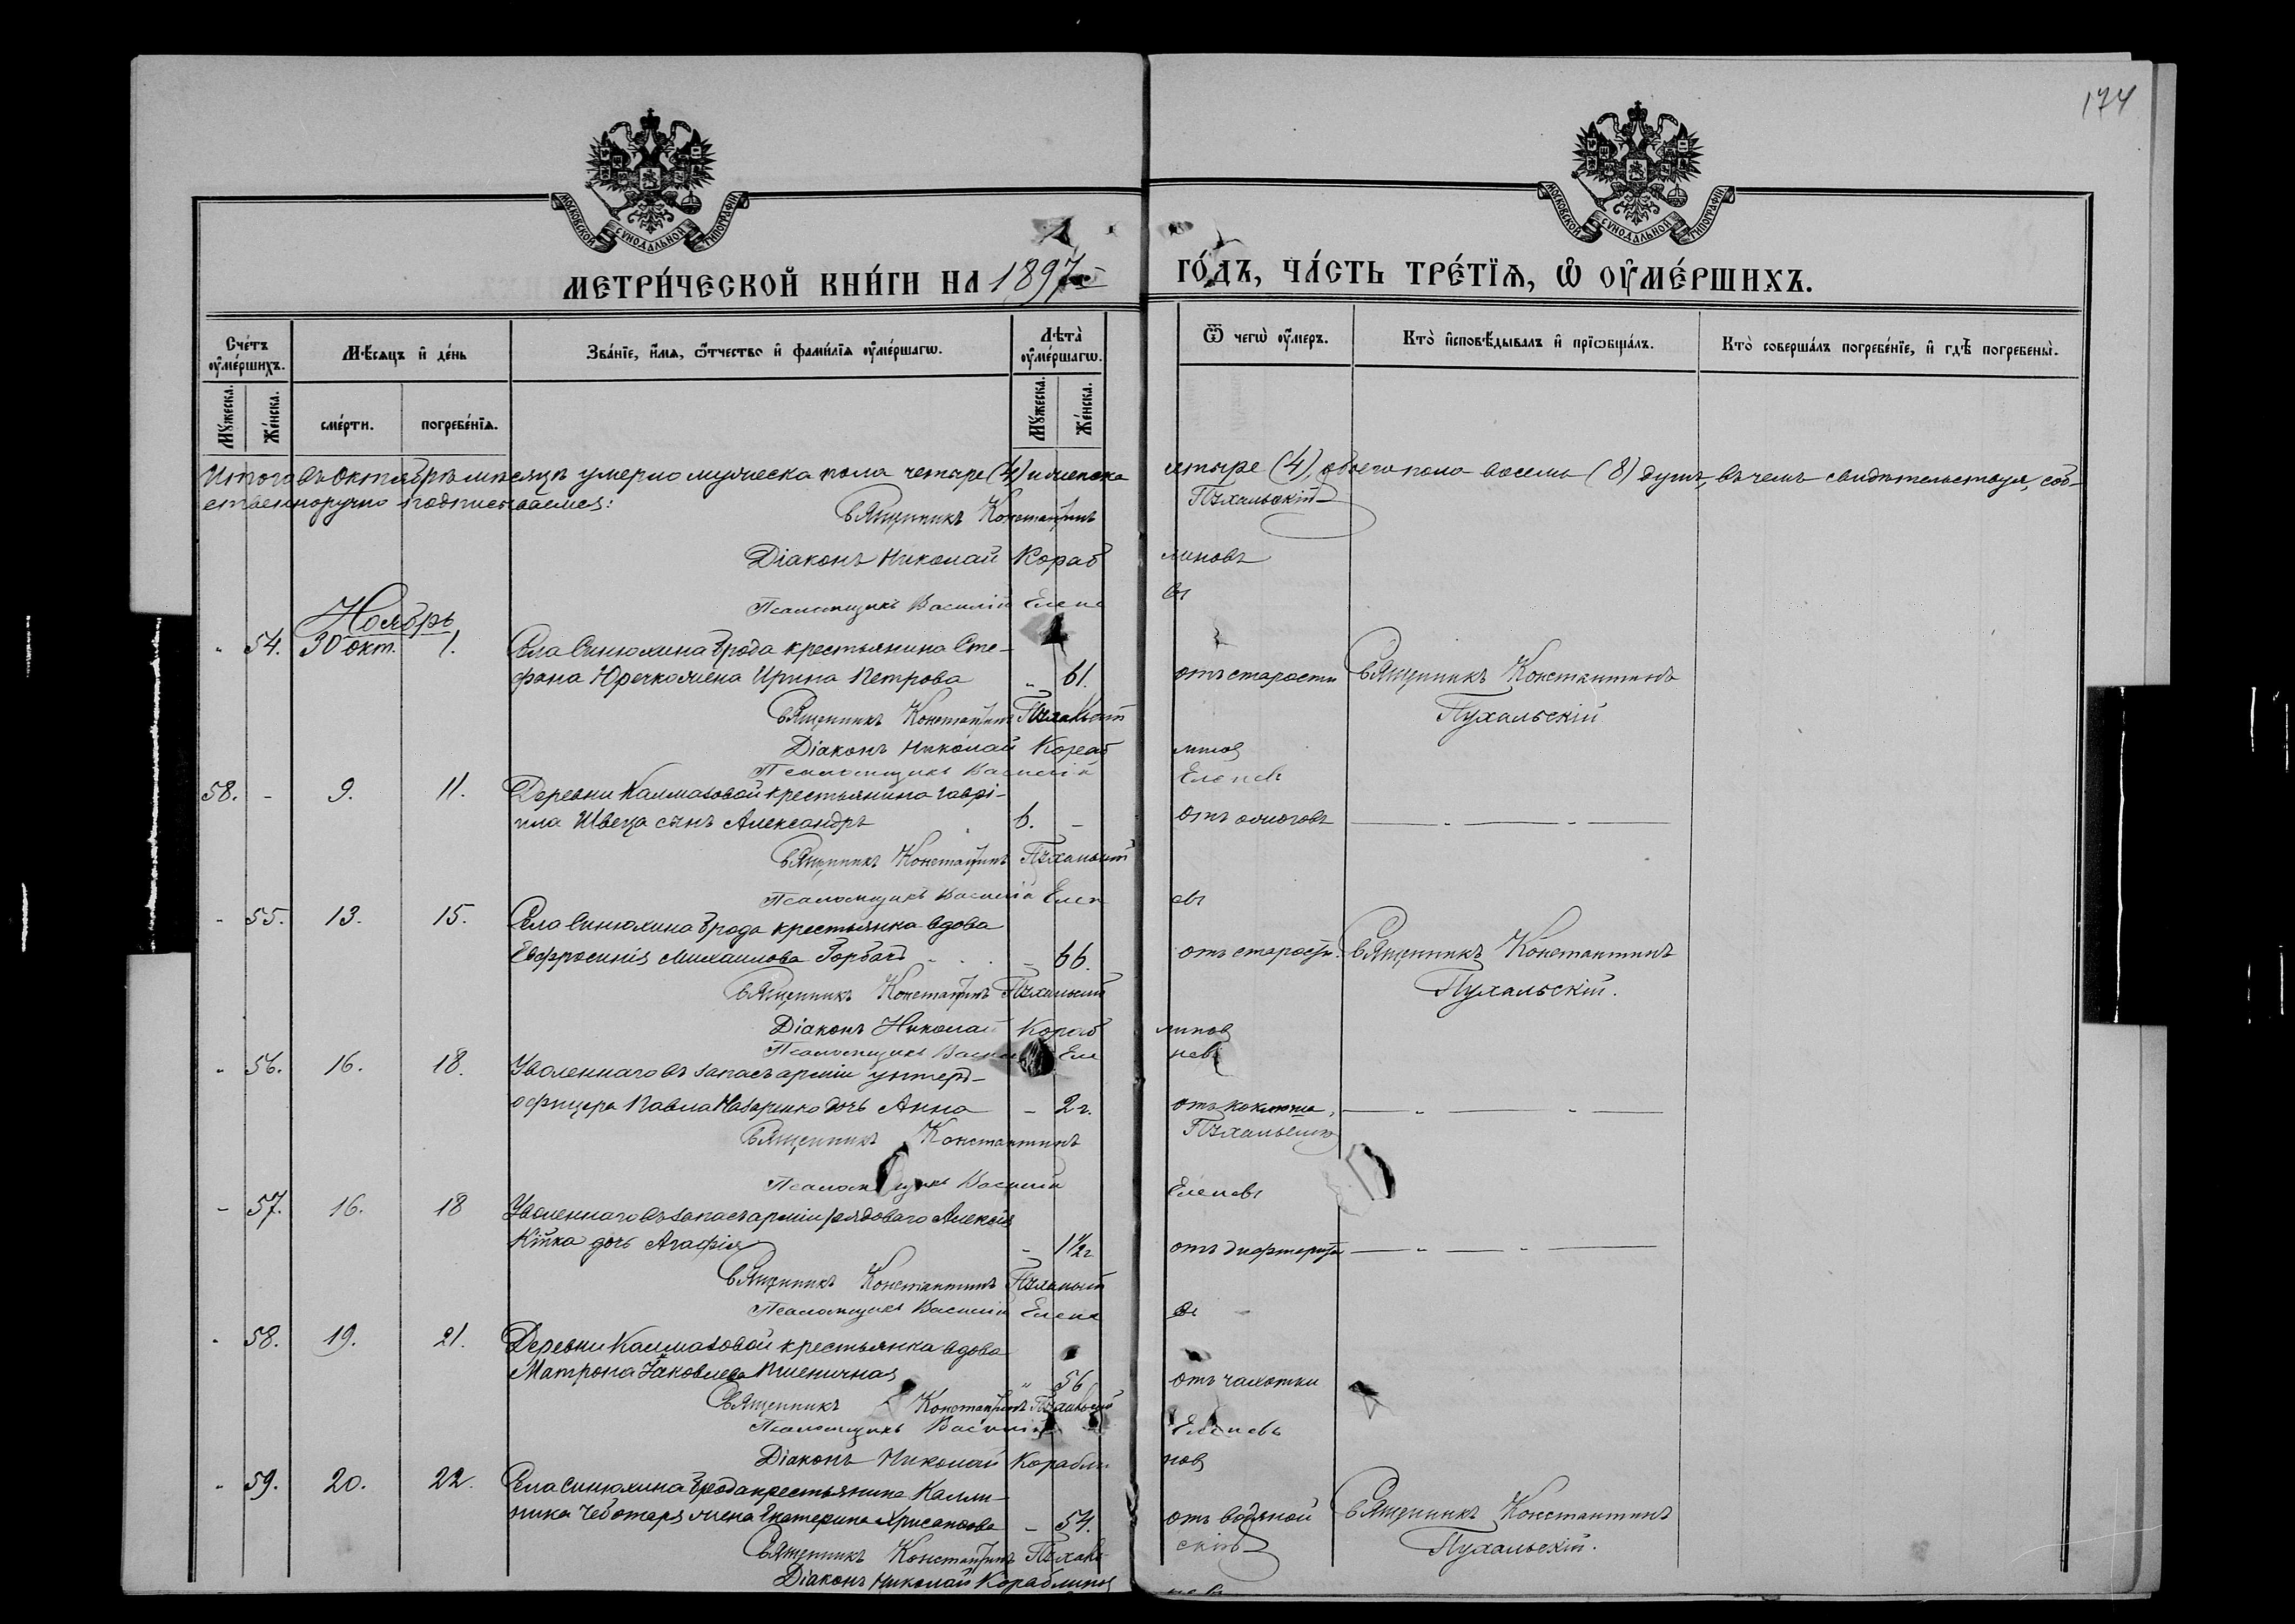 174
МОСКОВСКОЙ СѴНОДАЛЬНОЙ ТИПОГРАФІИ
МОСКОВСКОЙ СѴНОДАЛЬНОЙ ТИПОГРАФІИ
МЕТРИ́ЧЕСКОЙ КНИ́ГИ НА 1897й ГО́ДЪ, ЧА́СТЬ ТРЕ́ТІѦ, Ѡ҆ ОУ҆МЕ́РШИХЪ.
Сче́тъ оу҆ме́ршихъ.
Мꙋ́жеска.
Же́нска.
Мѣ́сѧцъ и҆ де́нь
сме́рти.
погребе́нїѧ.
Зва́нїе, и҆́мѧ, ѻ҆́тчество и҆ фами́лїѧ оу҆ме́ршагѡ.
Лѣта̀ оу҆ме́ршагѡ.
Мꙋ́жеска.
Же́нска.
Ѿ чегѡ̀ оу҆́меръ.
Кто̀ и҆сповѣ́дывалъ и҆ прїѡбща́лъ.
Кто̀ соверша́лъ погребе́нїе, и҆ гдѣ̀ погребены̀.
Итого въ Октябрѣ мѣсяцѣ умерло мужеска пола четыре (4) и женска четыре (4), обоего пола восемь (8) душъ, въ чемъ свидѣтельствуя, соб-
ственноручно подписываемся:
Священникъ Константинъ Пухальскій
Діаконъ Николай Кораблиновъ
Псаломщикъ Василій Еленевъ
Ноябрь
" 54. 30 окт. 1. Села Синюхина Брода крестьянина Сте-
фана Юречко жена Ирина Петрова " 61. отъ старости Священникъ Константинъ
Пухальскій
Священникъ Константинъ Пухальскій
Діаконъ Николай Кораблинов
Псаломщикъ Василій Еленевъ
58. - 9. 11. Деревни Калмазовой крестьянина Гаврі-
ила Швеца сынъ Александръ 6. - отъ ожоговъ — " — " —
Священникъ Константинъ Пухальскій
Псаломщикъ Василій Еленевъ
- 55. 13. 15. Села Синюхина Брода крестьянка вдова
Евфросинія Михаилова Горбачъ - 66. отъ старости. Священникъ Константинъ
Пухальскій.
Священникъ Константинъ Пухальскій
Діаконъ Николай Кораблинов
Псаломщикъ Василій Еленевъ
" 56. 16. 18. Уволеннаго въ запасъ арміи унтеръ-
офицера Павла Назаренко дочь Анна - 2 г. отъ коклюша — " — " —
Священникъ Константинъ Пухальскій
Псаломщикъ Василій Еленевъ
- 57. 16. 18 Уволеннаго въ запасъ арміи рядоваго Алексія
Кійка дочь Агафія - 1½ г отъ дифтерита — " — " —
Священникъ Константинъ Пухальскій
Псаломщикъ Василій Еленевъ
" 58. 19. 21. Деревни Калмазовой крестьянка вдова
Матрона Іаковлева Пшеничная " 56 отъ чахотки
Священникъ Константинъ Пухальскій
Псаломщикъ Василій Еленевъ
Діаконъ Николай Кораблинов
" 59. 20. 22. Села Синюхина Брода крестьянина Калли-
ника Чеботаря жена Екатерина Хрисанфова - 54. отъ водяной Священникъ Константинъ
Пухальскій.
Священникъ Константинъ Пухальскій
Діаконъ Николай Кораблинов